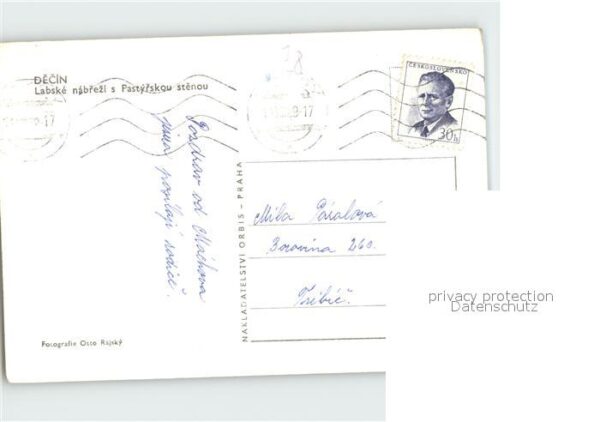 DĚČÍN
Labské nábřeží s Pastýřskou stěnou
ČESKOSLOVENSKO
30h
Pozdrav od Máchova
posílají rodiče.
NAKLADATELSTVÍ ORBIS – PRAHA
Míla Páralová
Borovina 260.
Třebíč.
Fotografie Otto Rajský
privacy protection
Datenschutz